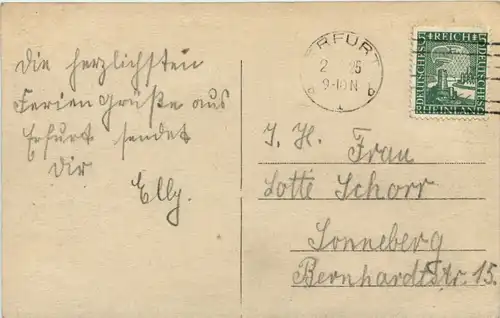 Die herzlichsten
Ferien Grüße aus
Erfurt sendet
Dir
Elly.
ERFURT
2 25
9-10 N
b b
5 REICH 5
DEUTSCHES
DEUTSCHES
RHEINLAND
I. H. Frau
Lotte Schorr
Sonneberg
Bernhardtstr. 15.